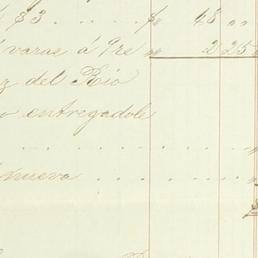 $3 . . . . $ 68 " "
varas á 9rs " 2 25
z del Rio
entregadole
. . . . .
nueva . . . . .